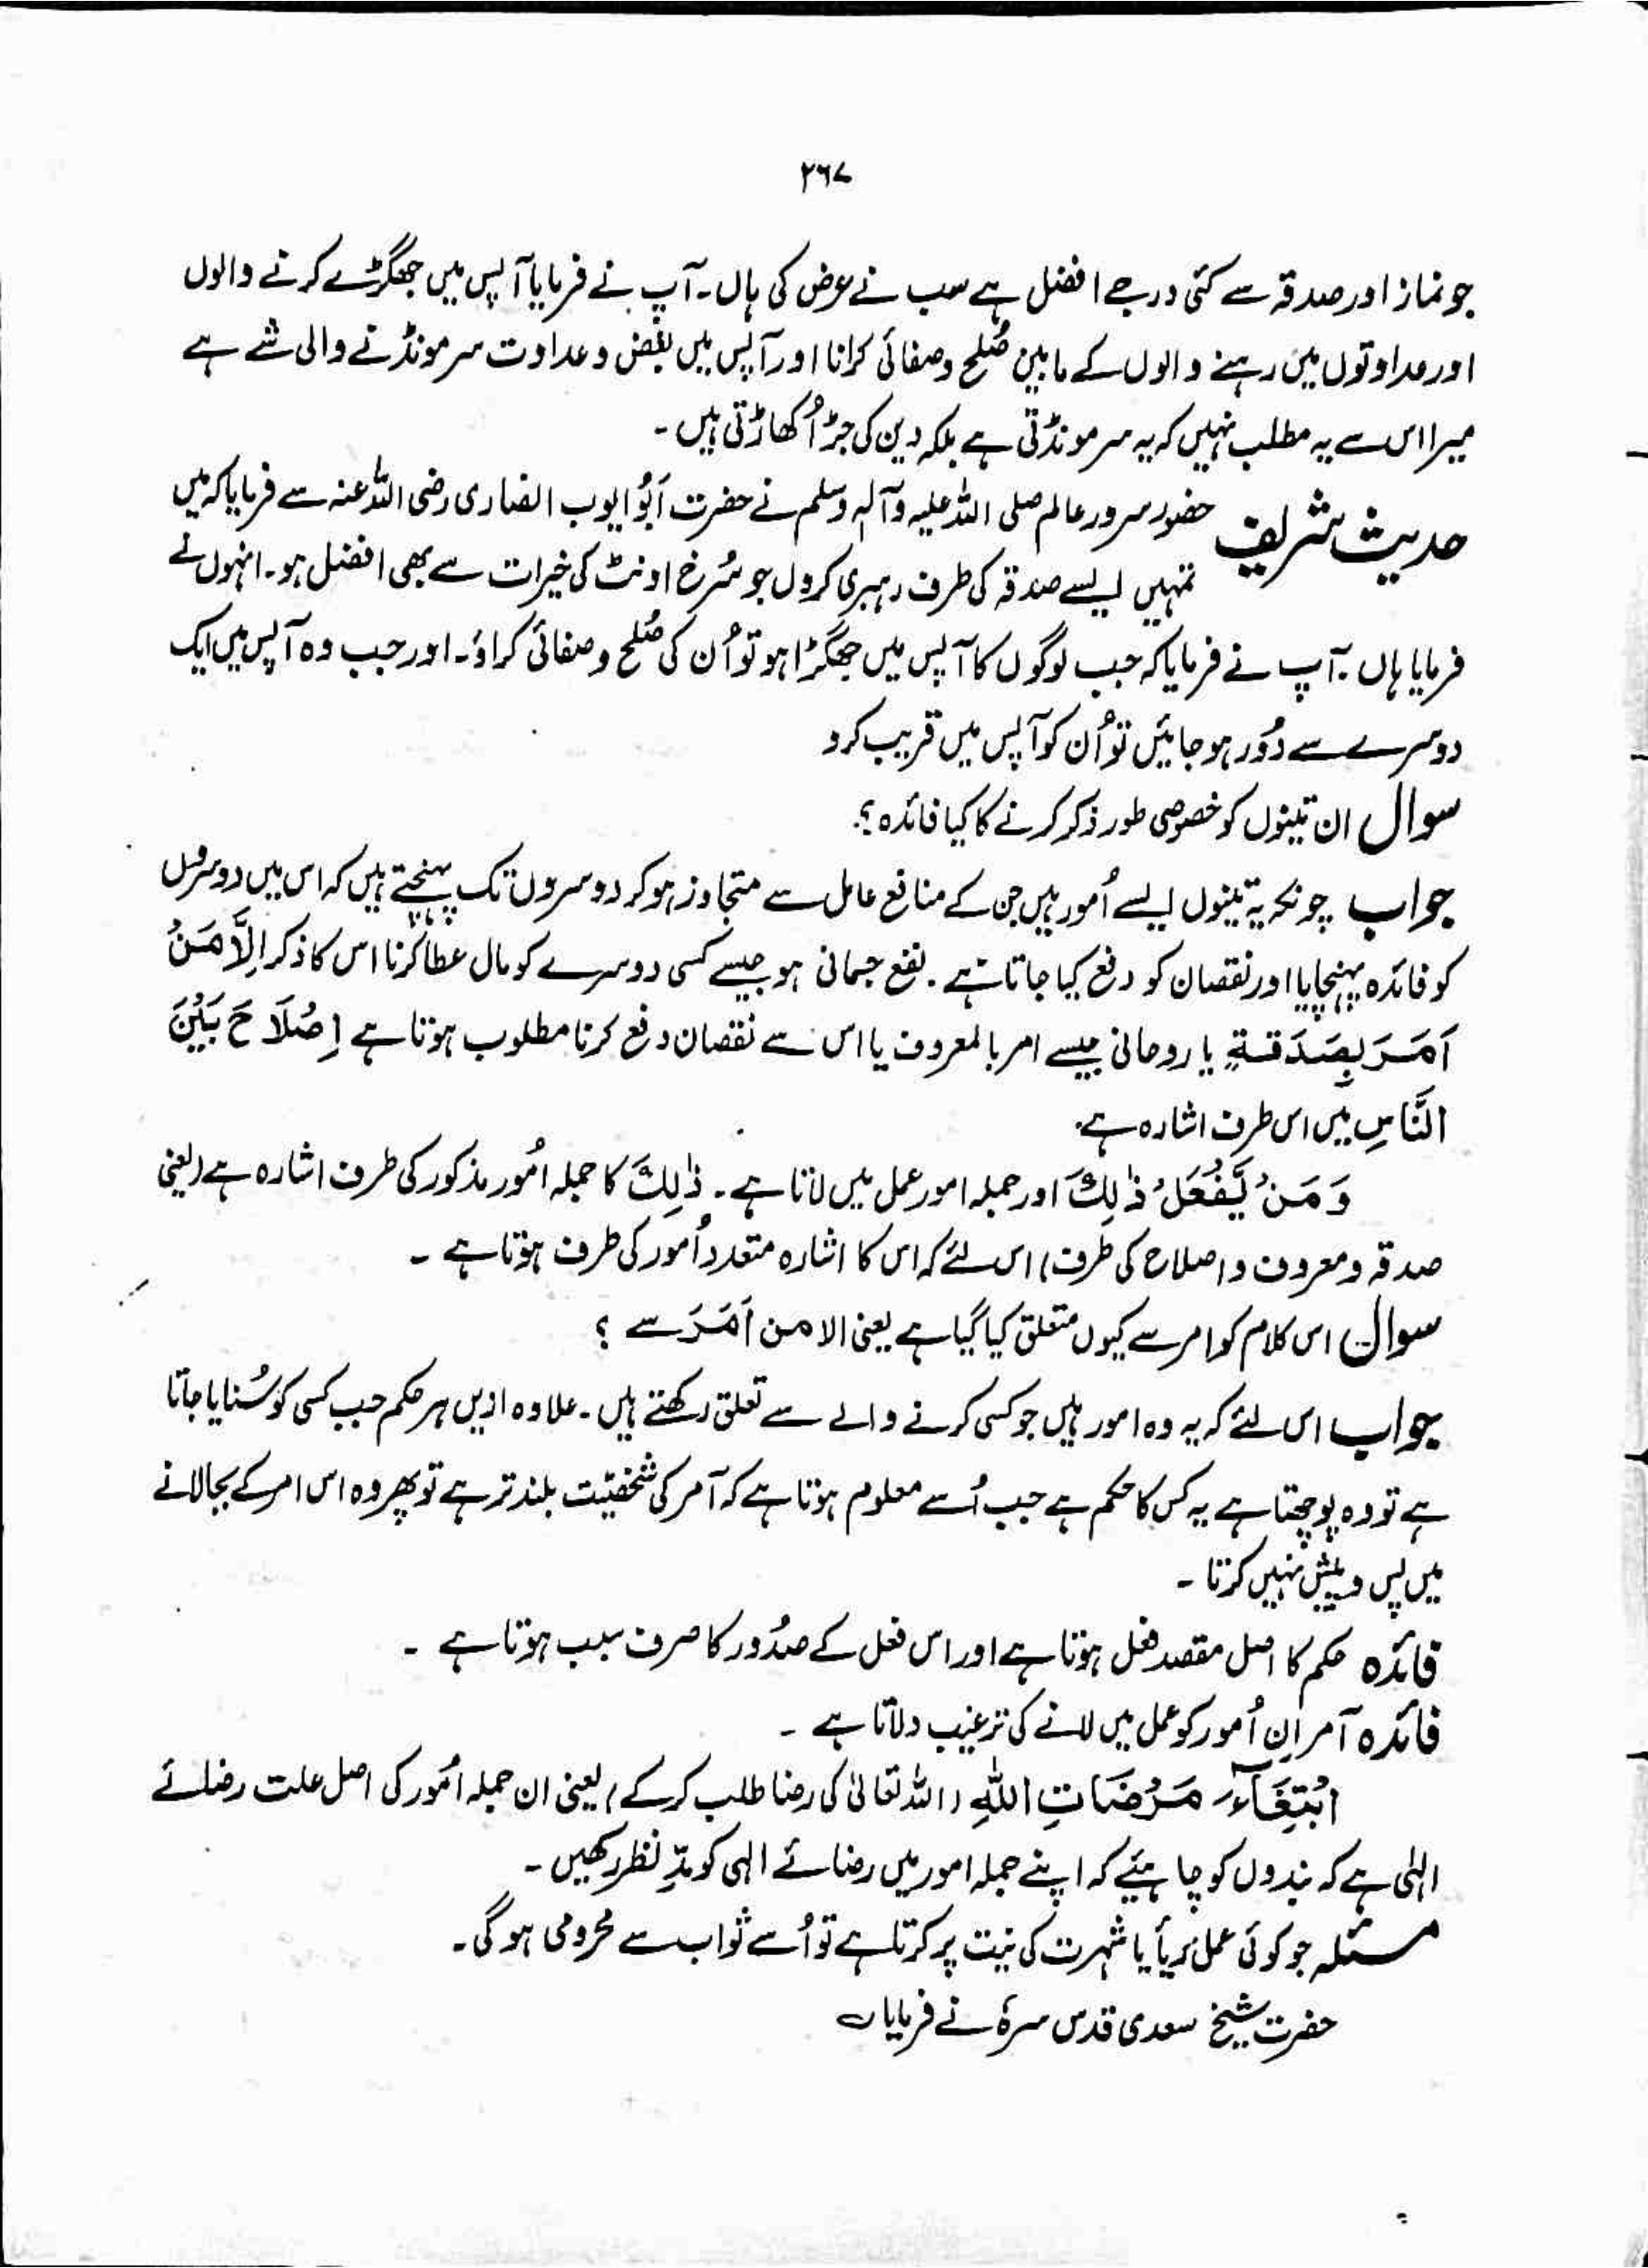 ۲۶۷
جو نماز اور صدقہ سے کئی درجے افضل ہے سب نے عرض کی ہاں۔ آپ نے فرمایا آپس میں جھگڑے کرنے والوں
اور عداوتوں میں رہنے والوں کے مابین صُلح و صفائی کرانا اور آپس میں بغض و عداوت سر مونڈنے والی شے ہے
میرا اس سے یہ مطلب نہیں کہ یہ سر مونڈتی ہے بلکہ دین کی جڑ اُکھاڑتی ہیں۔
حدیث شریف حضور سرور عالم صلی اللہ علیہ وآلہ وسلم نے حضرت ابُو ایوب انصاری رضی اللہ عنہ سے فرمایا کہ میں
تمہیں ایسے صدقہ کی طرف رہبری کروں جو سُرخ اونٹ کی خیرات سے بھی افضل ہو۔ انہوں نے
فرمایا ہاں۔ آپ نے فرمایا کہ جب لوگوں کا آپس میں جھگڑا ہو تو اُن کی صُلح و صفائی کراؤ۔ اور جب وہ آپس میں ایک
دوسرے سے دُور ہو جائیں تو اُن کو آپس میں قریب کردو
سوال ان تینوں کو خصوصی طور ذکر کرنے کا کیا فائدہ؟
جواب چونکہ یہ تینوں ایسے اُمور ہیں جن کے منافع عامل سے متجاوز ہو کر دوسروں تک پہنچتے ہیں کہ اس میں دوسروں
کو فائدہ پہنچایا اور نقصان کو دفع کیا جاتا ہے۔ نفع جسمانی ہو جیسے کسی دوسرے کو مال عطا کرنا اس کا ذکر اِلَّا مَنْ
اَمَرَ بِصَدَقَةٍ یا روحانی جیسے امر بالمعروف یا اس سے نقصان دفع کرنا مطلوب ہوتا ہے اِصْلَاحَ بَیْنَ
النَّاسِ میں اس طرف اشارہ ہے۔
وَ مَنْ یَّفْعَلْ ذٰلِکَ اور جملہ امور عمل میں لاتا ہے۔ ذٰلِکَ کا جملہ اُمور مذکور کی طرف اشارہ ہے (یعنی
صدقہ و معروف و اصلاح کی طرف) اس لئے کہ اس کا اشارہ متعدد اُمور کی طرف ہوتا ہے ۔
سوال اس کلام کو امر سے کیوں متعلق کیا گیا ہے یعنی الا من اَمَرَ سے ؟
جواب اس لئے کہ یہ وہ امور ہیں جو کسی کرنے والے سے تعلق رکھتے ہیں۔ علاوہ ازیں ہر حکم جب کسی کو سُنایا جاتا
ہے تو وہ پوچھتا ہے یہ کس کا حکم ہے جب اُسے معلوم ہوتا ہے کہ آمر کی شخصیّت بلند تر ہے تو پھر وہ اس امر کے بجالانے
میں پس و پیش نہیں کرتا ۔
فائدہ حکم کا اصل مقصد فعل ہوتا ہے اور اس فعل کے صدُور کا صرف سبب ہوتا ہے ۔
فائدہ آمر اِن اُمور کو عمل میں لانے کی ترغیب دلاتا ہے ۔
ابْتِغَآءَ مَرْضَاتِ اللّٰہِ (اللہ تعالیٰ کی رضا طلب کر کے) یعنی ان جملہ اُمور کی اصل علت رضائے
الہٰی ہے کہ بندوں کو چاہئیے کہ اپنے جملہ امور میں رضائے الہی کو مدِّ نظر رکھیں ۔
مسئلہ جو کوئی عمل ریأ یا شہرت کی نیت پر کرتا ہے تو اُسے ثواب سے محرومی ہو گی۔
حضرت شیخ سعدی قدس سرہٗ نے فرمایا ؎